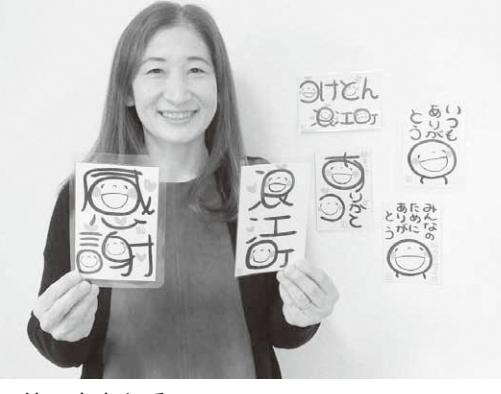 感謝
浪江町
うけどん
浪江町
ありがとう
いつも
ありが
とう
みんなの
ために
ありが
とう